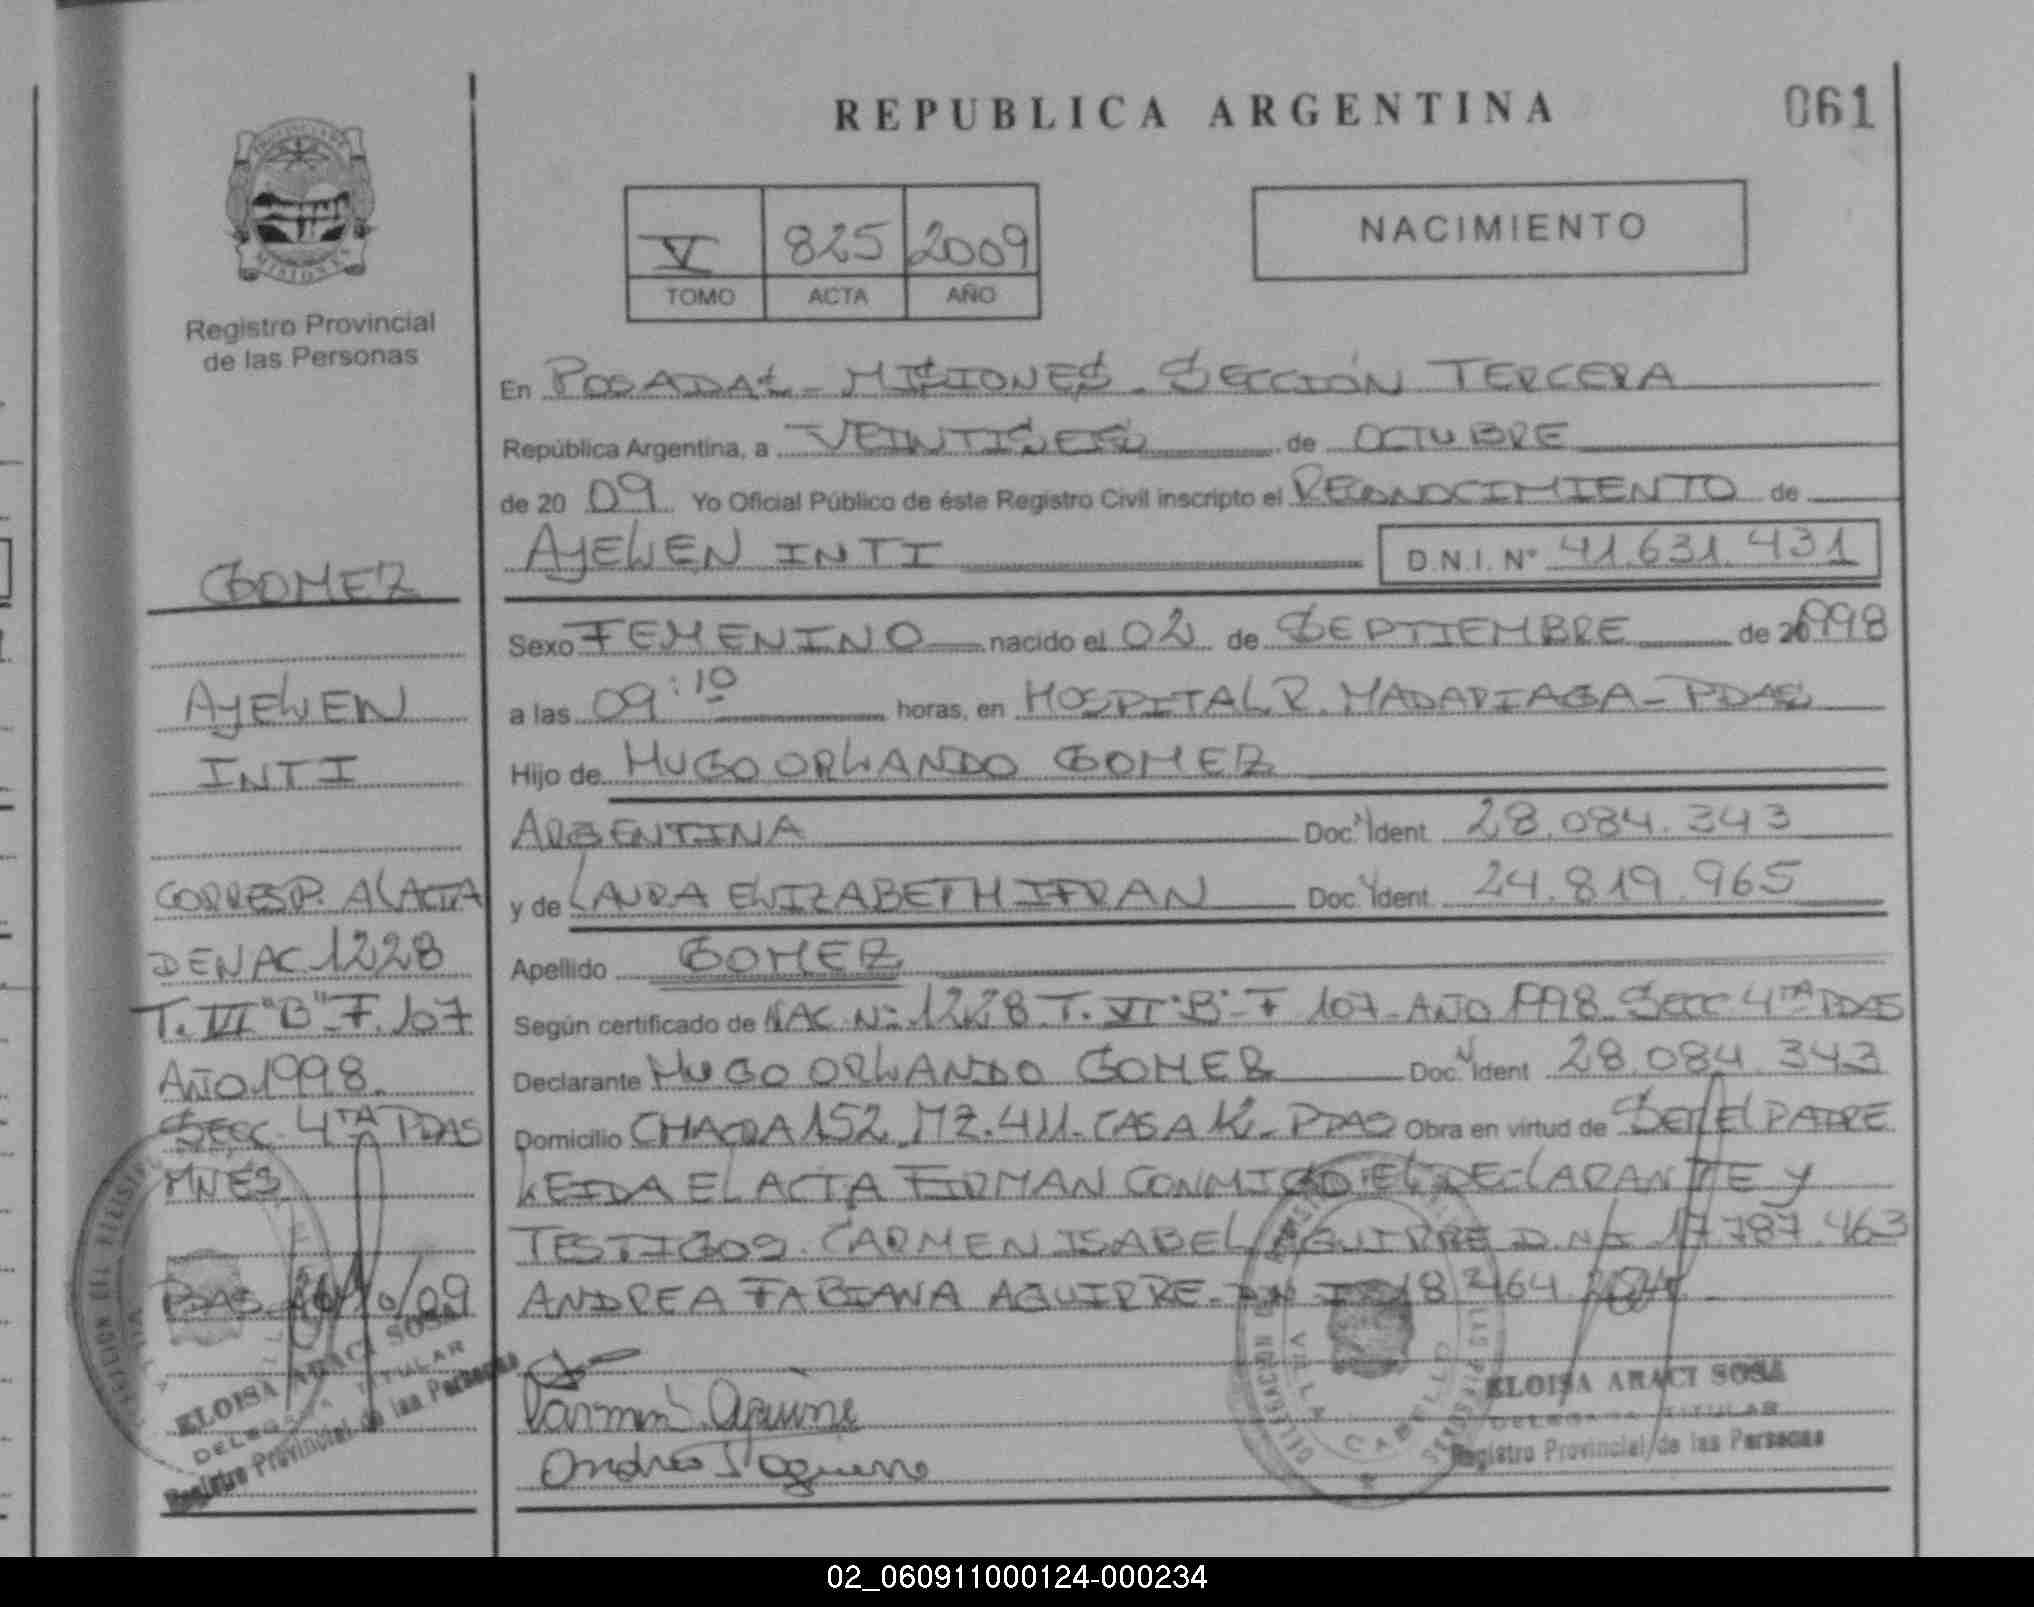 REPUBLICA ARGENTINA
061
PROVINCIA DE
MISIONES
Registro Provincial
de las Personas
V 825 2009
TOMO ACTA AÑO
NACIMIENTO
En POSADAS - MISIONES - SECCIÓN TERCERA
República Argentina, a VEINTISEIS de OCTUBRE
de 20 09 Yo Oficial Público de éste Registro Civil inscripto el RECONOCIMIENTO de
AYELEN INTI D.N.I. Nº 41.631.431
Sexo FEMENINO nacido el 02 de SEPTIEMBRE de 1998
a las 09:10 horas, en HOSPITAL R. MADARIAGA - PDAS
Hijo de HUGO ORLANDO GOMEZ
ARGENTINA Doc. Ident. 28.084.343
y de LAURA ELIZABETH IFRAN Doc. Ident. 24.819.965
Apellido GOMEZ
Según certificado de NAC Nº 1228 T. VI "B" - F 107 - AÑO 1998 SECC 4TA PDAS
Declarante HUGO ORLANDO GOMEZ Doc. Ident 28.084.343
Domicilio CHACRA 152 MZ. 411. CASA K - PDAS Obra en virtud de SER EL PADRE
LEIDA EL ACTA FIRMAN CONMIGO EL DECLARANTE Y
TESTIGOS. CARMEN ISABEL AGUIRRE D.N.I 17.787.463
ANDREA FABIANA AGUIRRE - DNI 18
Carmen Aguirre
Andrea F Aguirre
VILLA CABELLO
ELOISA ARACI SOSA
DELEGADA TITULAR
Registro Provincial de las Personas
GOMEZ
AYELEN
INTI
CORRESP. AL ACTA
DE NAC 1228
T. VI "B" - F. 107
AÑO 1998.
SECC. 4TA PDAS
MNES
PDAS 26/10/09
ELOISA ARACI SOSA
DELEGADA TITULAR
Registro Provincial de las Personas
02_060911000124-000234